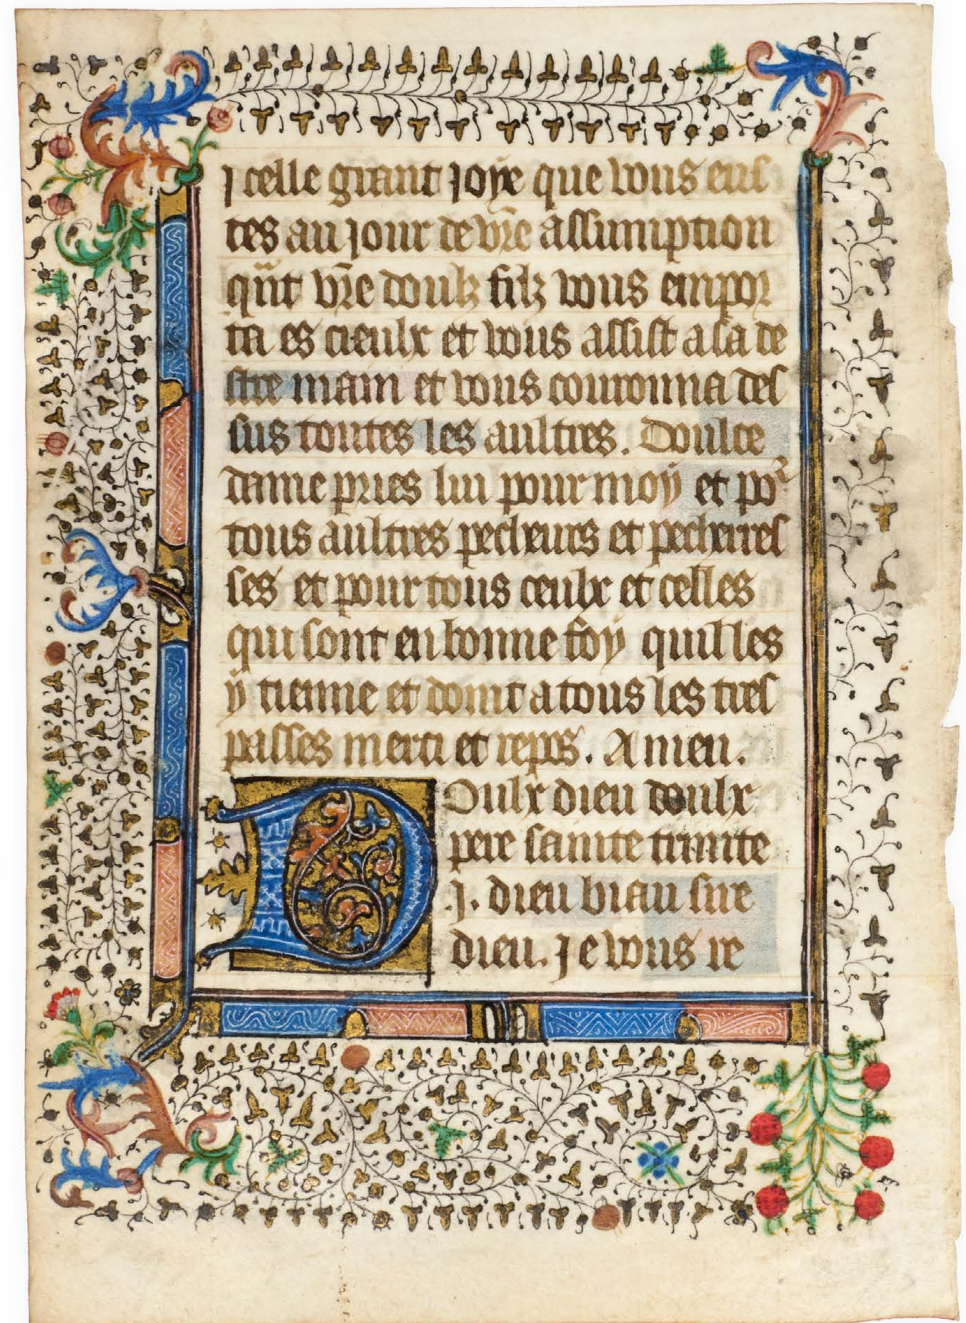 Jcelle grant joÿe que vous eus
tes au jour de vr̃e assumption
qũt vr̃e doulz filz vous empor
ta es cieulx et vous assist a sa de
stre main et vous couronna des
sus toutes les aultres. Doulce
dame pries lui pour moÿ et po᷑
tous aultres pecheurs et pecherres
ses et pour tous ceulx et celles
qui sont en bonne foÿ quil les
ÿ tienne et doint a tous les tres
passes merci et repos. Amen.
Doulx dieu doulx
pere sainte trinite
j. dieu biau sire
dieu. Je vous re